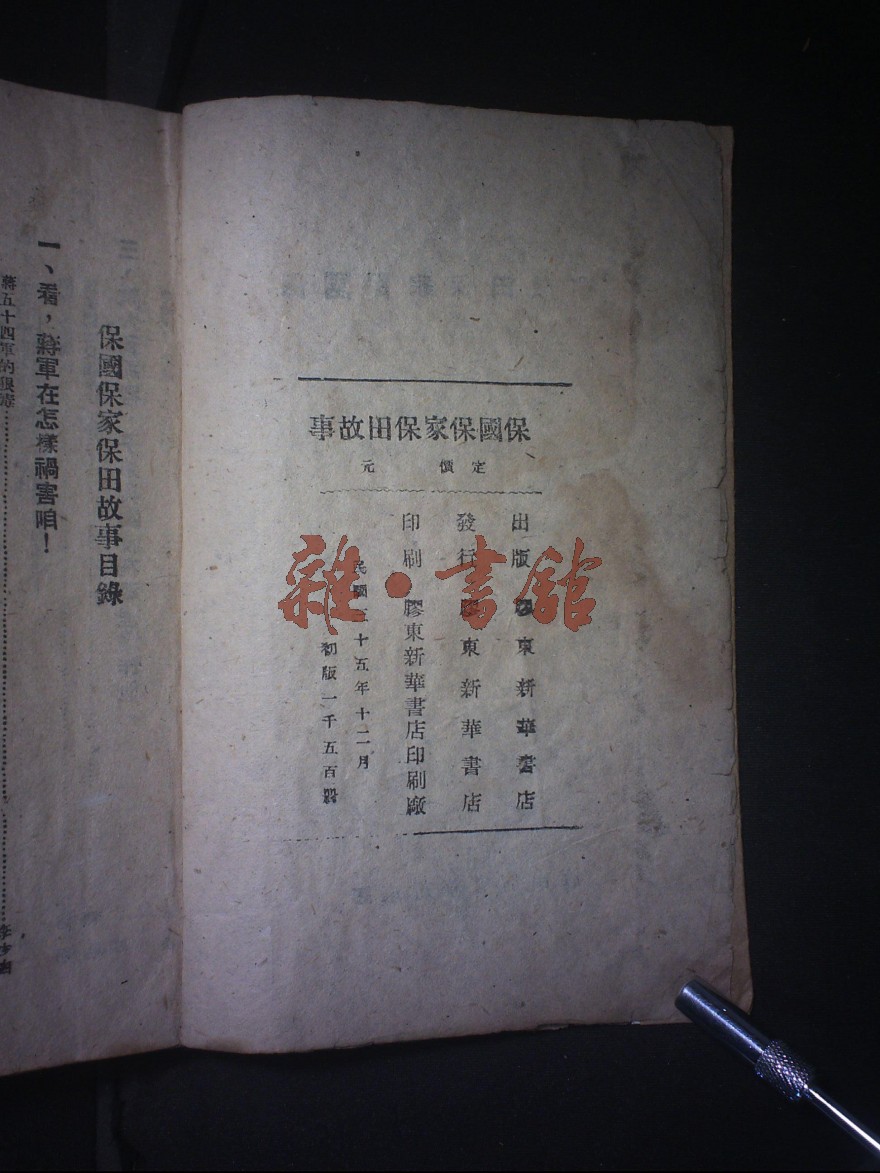 保國保家保田故事
定價 元
出版 膠東新華書店
發行 膠東新華書店
印刷 膠東新華書店印刷廠
民國三十五年十二月
初版一千五百冊
雜·書館
保國保家保田故事目錄
一、看，蔣軍在怎樣禍害咱！
蔣五十四軍的狠毒